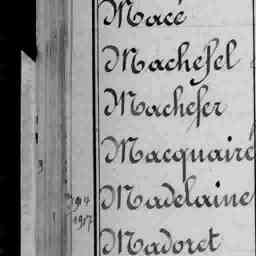 Macé
Machefel
Machefer
Macquaire
Madelaine
1917
Madoret